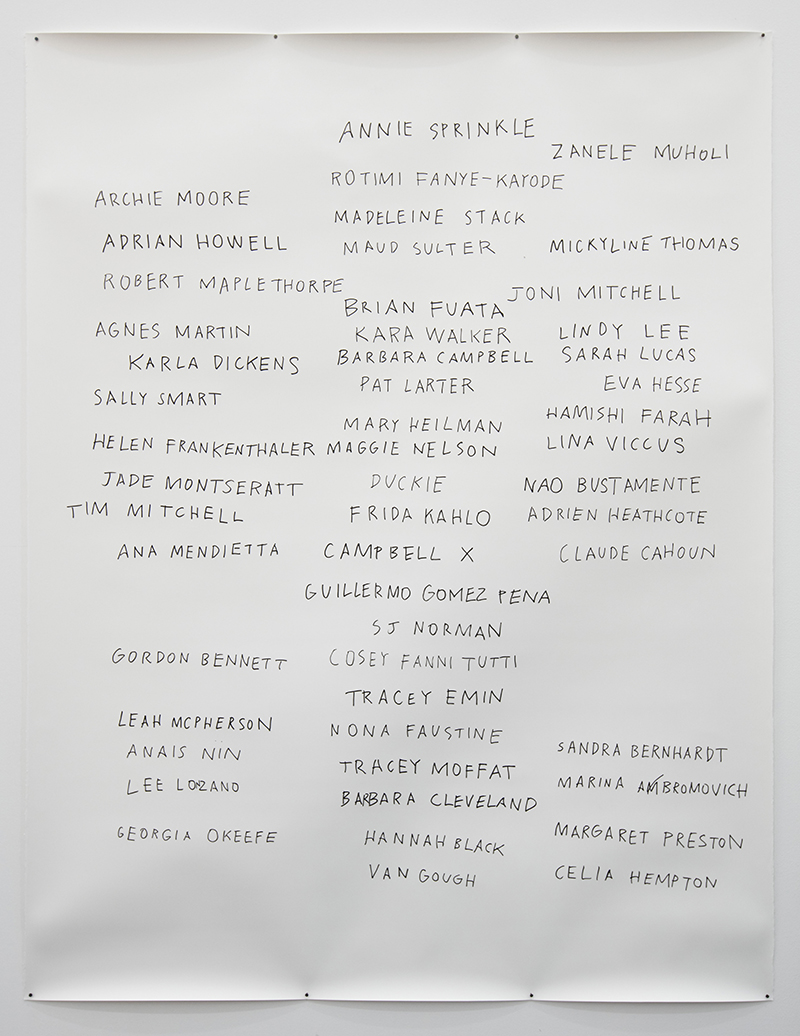 ANNIE SPRINKLE
ZANELE MUHOLI
ROTIMI FANYE-KAYODE
ARCHIE MOORE
MADELEINE STACK
ADRIAN HOWELL
MAUD SULTER
MICKYLINE THOMAS
ROBERT MAPLETHORPE
JONI MITCHELL
BRIAN FUATA
AGNES MARTIN
KARA WALKER
LINDY LEE
KARLA DICKENS
BARBARA CAMPBELL
SARAH LUCAS
PAT LARTER
EVA HESSE
SALLY SMART
HAMISHI FARAH
MARY HEILMAN
HELEN FRANKENTHALER
MAGGIE NELSON
LINA VICCUS
JADE MONTSERATT
DUCKIE
NAO BUSTAMENTE
TIM MITCHELL
FRIDA KAHLO
ADRIEN HEATHCOTE
ANA MENDIETTA
CAMPBELL X
CLAUDE CAHOUN
GUILLERMO GOMEZ PENA
SJ NORMAN
GORDON BENNETT
COSEY FANNI TUTTI
TRACEY EMIN
LEAH MCPHERSON
NONA FAUSTINE
ANAIS NIN
SANDRA BERNHARDT
TRACEY MOFFAT
LEE LOZANO
MARINA AMBROMOVICH
BARBARA CLEVELAND
GEORGIA OKEEFE
HANNAH BLACK
MARGARET PRESTON
VAN GOUGH
CELIA HEMPTON